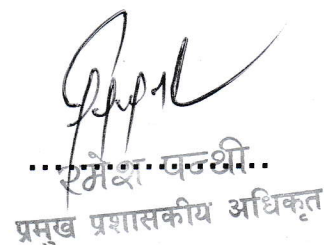 रमेश पन्थी
प्रमुख प्रशासकीय अधिकृत